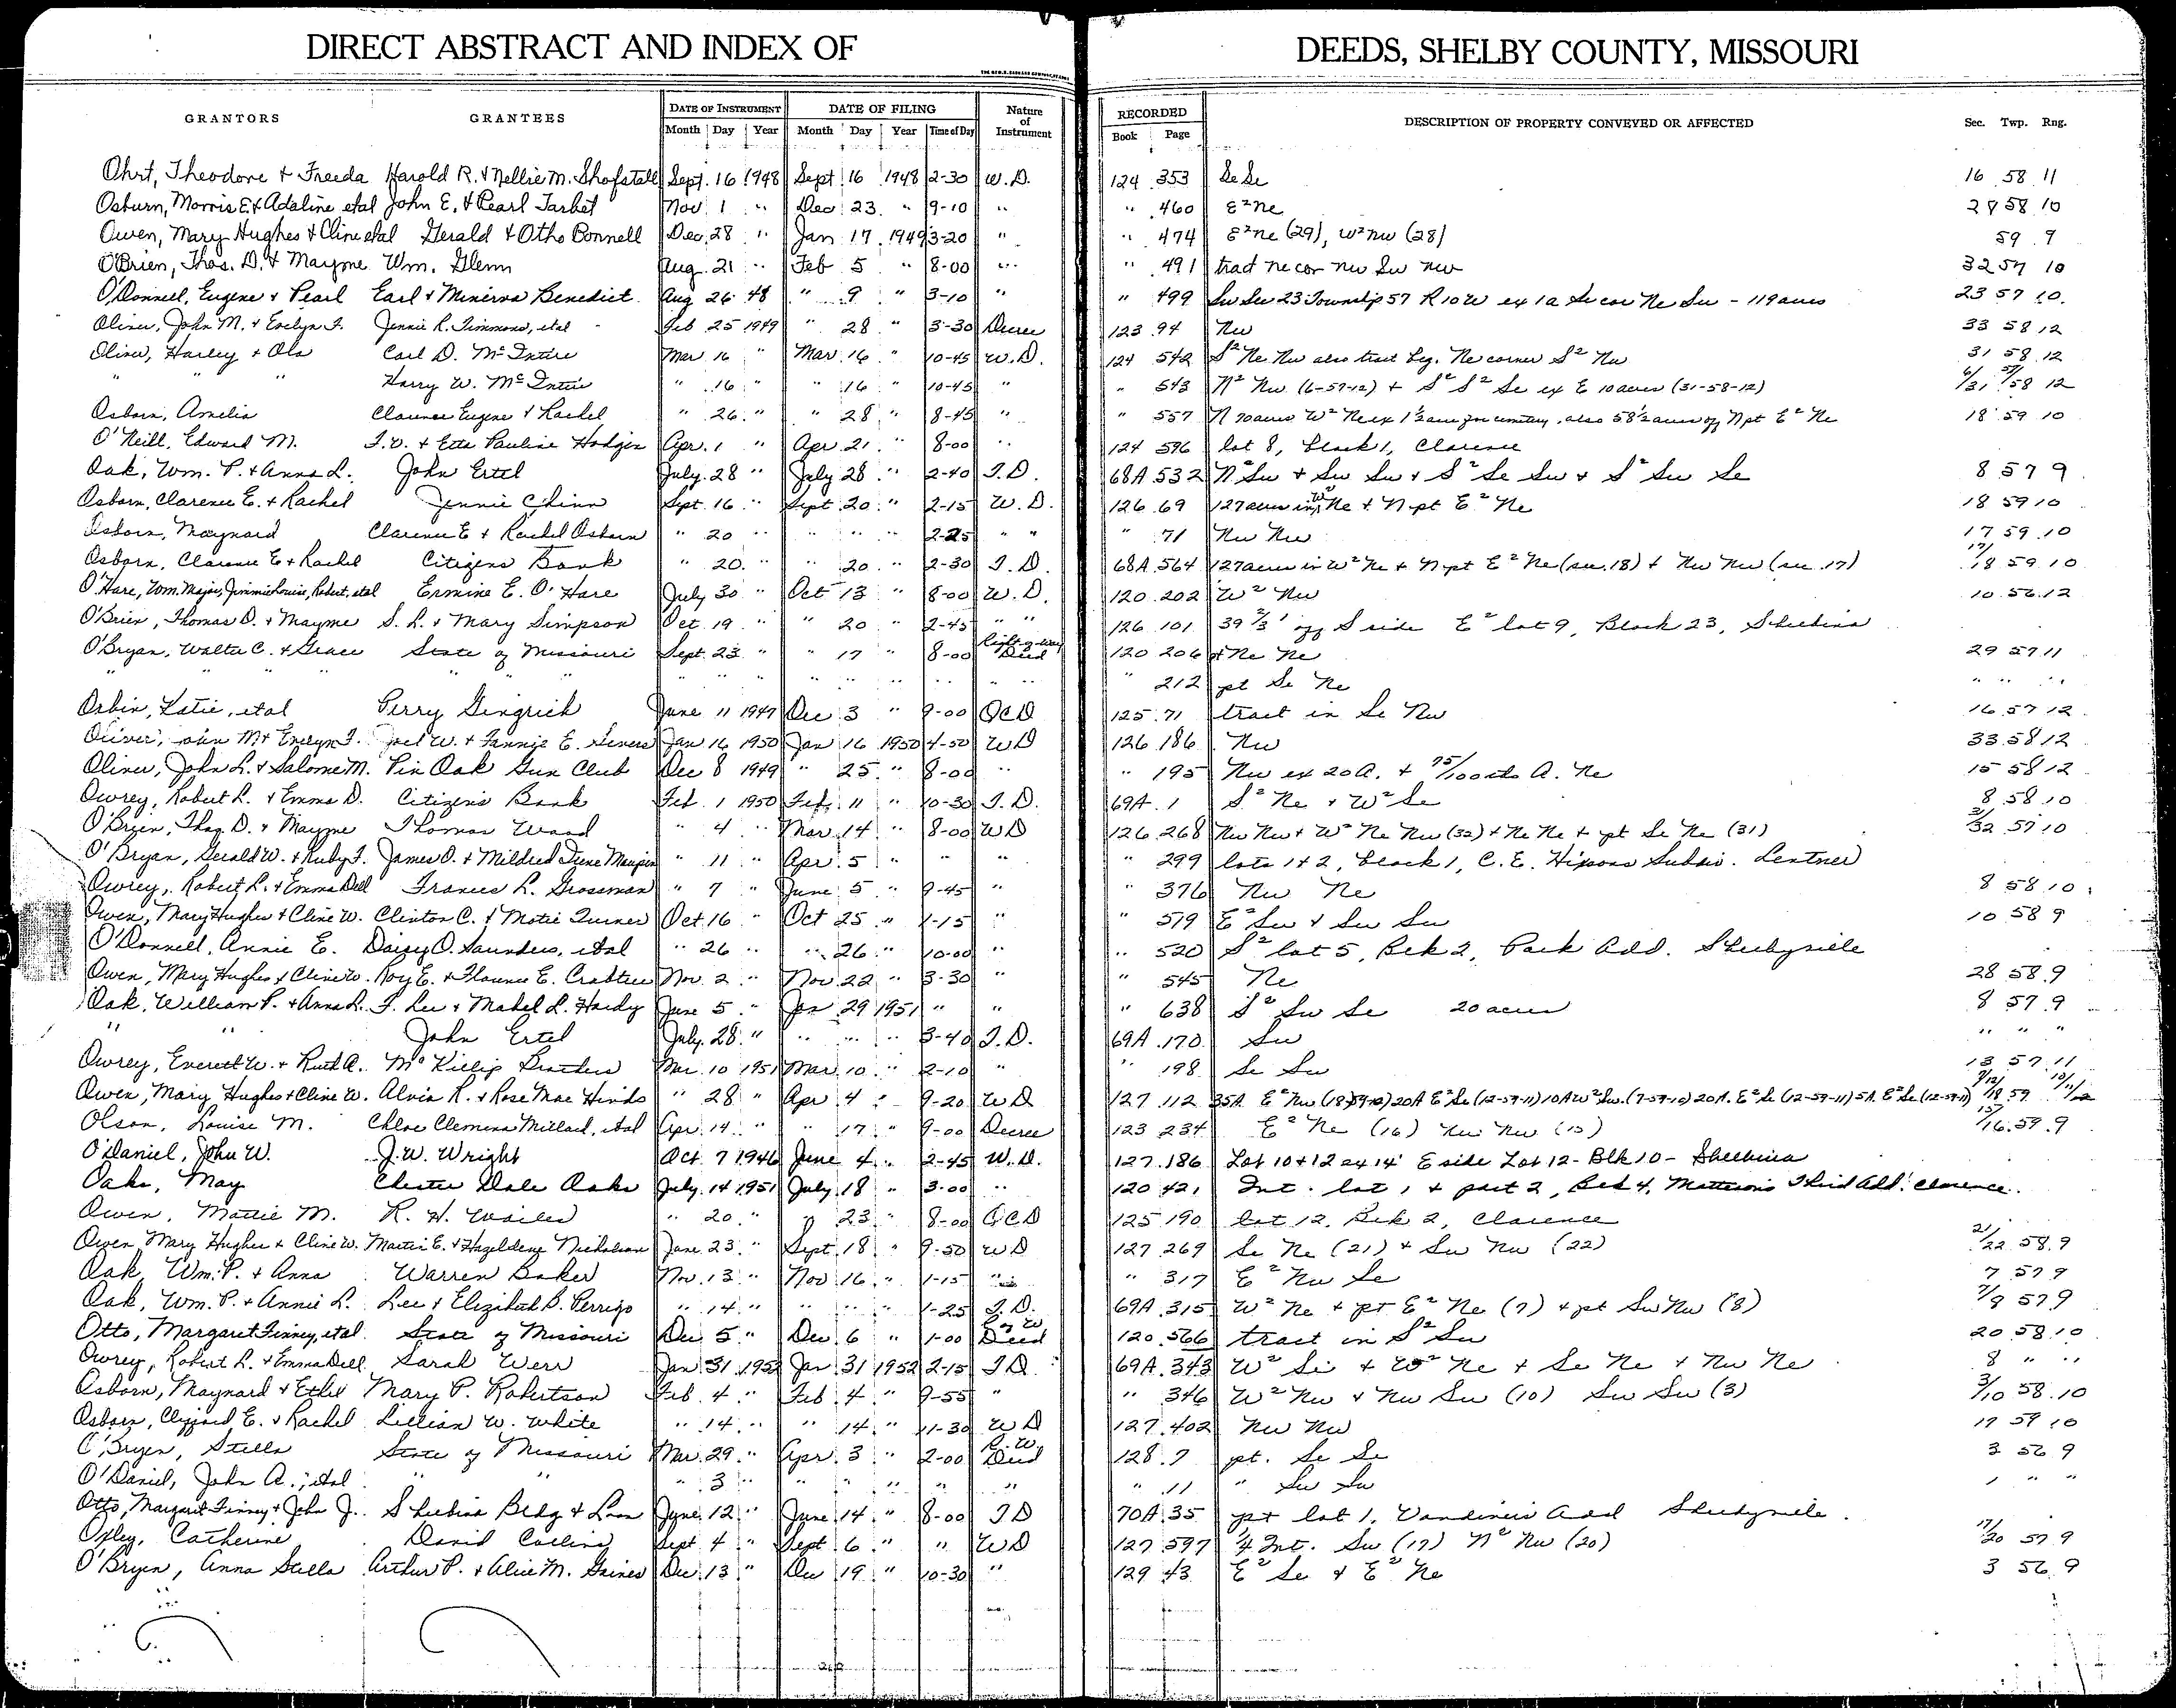 DIRECT ABSTRACT AND INDEX OF DEEDS, SHELBY COUNTY, MISSOURI
GRANTORS GRANTEES DATE OF INSTRUMENT DATE OF FILING Nature of Instrument RECORDED DESCRIPTION OF PROPERTY CONVEYED OR AFFECTED Sec. Twp. Rng.
Month Day Year Month Day Year Time of Day Book Page
Ohrt, Theodore & Freeda Harold R. & Nellie M. Shofstall Sept. 16 1948 Sept 16 1948 2-30 W.D. 124 353 Se Se 16 58 11
Osburn, Morris E. & Adaline etal John E. & Pearl Tarbet Nov 1 " Dec 23 " 9-10 " " 460 E² ne 58 10
Owen, Mary Hughes & Cline etal Gerald & Otho Bonnell Dec 28 " Jan 17 1949 3-20 " " 474 E² ne (29), W² nw (28) 59 9
O'Brien, Thos. D. & Mayme Wm. Glenn Aug. 21 " Feb 5 " 8-00 " " 491 tract ne cor nw Sw nw 32 57 10
O'Donnell, Eugene & Pearl Earl & Minerva Benedict Aug 26 48 " 9 " 3-10 " " 499 Sw Sec 23 Township 57 R 10 W ex 1a Se cor Ne Sw - 119 acres 23 57 10
Oliver, John M. & Evelyn F. Jennie R. Timmons, etal Feb 25 1949 " 28 " 3-30 Decree 123 94 Nw 33 58 12
Oliver, Harley & Ola Carl D. McIntire Mar 16 " Mar 16 " 10-45 W.D. 124 542 S² Ne Nw also tract beg. Ne corner S² Nw 31 58 12
" " " Harry W. McIntire " 16 " " 16 " 10-45 " " 543 N² Nw (6-57-12) & S² S² Se ex E 10 acres (31-58-12) 6/31 57/58 12
Osborn, Amelia Clarence Eugene & Rachel " 26 " " 28 " 8-45 " " 557 N 70 acres W² Ne ex 1½ acre for cemetery, also 58½ acres off N pt E² Ne 18 59 10
O'Neill, Edward M. & Etta Pauline Hodgin Apr. 1 " Apr 21 " 8-00 " 124 596 lot 8, block 1, Clarence
Oak, Wm. P. & Anna L. John Ertel July 28 " July 28 " 2-40 T.D. 68A 532 N² Sw & Sw Sw & S² Se Sw & S² Sw Se 8 57 9
Osborn, Clarence E. & Rachel Jennie Chinn Sept. 16 " Sept 20 " 2-15 W.D. 126 69 127 acres in W² Ne & N pt E² Ne 18 59 10
Osborn, Maynard Clarence E & Rachel Osborn " 20 " " " " 2-25 " " " 71 Nw Nw 17 59 10
Osborn, Clarence E & Rachel Citizens Bank " 20 " " 20 " 2-30 T.D. 68A 564 127 acres in W² Ne & N pt E² Ne (sec. 18) & Nw Nw (sec. 17) 17/18 59 10
O'Hare, Wm. Major, Jimmie Louise, Robert, etal Ermine E. O'Hare July 30 " Oct 13 " 8-00 W.D. 120 202 W² Nw 10 56 12
O'Brien, Thomas D. & Mayme S. L. & Mary Simpson Oct. 19 " " 20 " 2-45 " " 126 101 39 ⅔' off S side E² lot 9, Block 23, Shelbina
O'Bryan, Walter C. & Grace State of Missouri Sept. 23 " " 17 " 8-00 Right of way Deed 120 206 pt Ne Ne 29 57 11
" " " " " " " " " " " " 212 pt Se Ne " " "
Orbin, Katie, etal Perry Gingrich June 11 1949 Dec 3 " 9-00 QCD 125 71 tract in Se Nw 16 57 12
Oliver, John M & Evelyn F. Joel W. & Fannie E. Jan 16 1950 Jan 16 1950 4-50 WD 126 186 Nw 33 58 12
Oliver, John L. & Salome M. Pin Oak Gun Club Dec 8 1949 " 25 " 8-00 " " 195 Nw ex 20 A. & 95/100ths A. Ne 15 58 12
Owrey, Robert L. & Emma D. Citizens Bank Feb. 1 1950 Feb. 11 " 10-30 T.D. 69A 1 S² Ne & W² Se 8 58 10
O'Brien, Thos. D. & Mayme Thomas Wood " 4 " Mar 14 " 8-00 WD 126 268 Nw Nw & W² Ne Nw (32) & Ne Ne & pt Se Ne (31) 31/32 57 10
O'Bryan, Gerald W. & Ruby F. James O. & Mildred Irene Maupin " 11 " Apr. 5 " " " " 299 lots 1 & 2, block 1, C. E. Hixons Subdiv. Lentner
Owrey, Robert L. & Emma Dell Frances L. Grossman " 7 " June 5 " 9-45 " " 376 Nw Ne 8 58 10
Owen, Mary Hughes & Cline W. Clinton C. & Motie Turner Oct 16 " Oct 25 " 1-15 " " 519 E² Sw & Sw Sw 10 58 9
O'Donnell, Annie E. Daisy O. Saunders, etal " 26 " " 26 " 10-00 " " 520 S² lot 5, Blk 2, Park Add. Shelbyville
Owen, Mary Hughes & Cline W. Roy E. & Florence E. Crabtree Nov. 2 " Nov. 22 " 3-30 " " 545 Ne 28 58 9
Oak, William P. & Anna L. F. Lee & Mabel L. Hardy June 5 " Jan 29 1951 " " " 638 S² Sw Se 20 acres 8 57 9
" " John Ertel July 28 " " " " 3-40 T.D. 69A 170 Sw " " "
Owrey, Everett W. & Ruth A. McKillip Brothers Mar. 10 1951 Mar. 10 " 2-10 " " 198 Se Sw 13 57 11
Owen, Mary Hughes & Cline W. Alvin R. & Rose Mae Hinds " 28 " Apr 4 " 9-20 WD 127 112 35A E² Nw (18-59-10) 20A E² Se (12-59-11) 10A W² Sw (7-59-10) 20A. E² Se (12-59-11) 5A. E² Se (12-59-11) 7/12/18 59 10/11
Olson, Louise M. Chloe Clemens Millard, etal Apr. 14 " " 17 " 9-00 Decree 123 234 E² Ne (16) Nw Nw (15) 15/16 59 9
O'Daniel, John W. J. W. Wright Oct 7 1946 June 4 " 2-45 W.D. 127 186 Lot 10 & 12 ex 14' E side Lot 12 - Blk 10 - Shelbina
Oaks, May Chester Dale Oaks July 14 1951 July 18 " 3-00 " 120 421 Int. lot 1 & part 2, Blk 4, Mattson's Third Add. Clarence
Owen, Mattie M. R. H. Wailes " 20 " " 23 " 8-00 QCD 125 190 lot 12, Blk 2, Clarence
Owen, Mary Hughes & Cline W. Martin E. & Hazeldene Nicholson June 23 " Sept. 18 " 9-50 WD 127 269 Se Ne (21) & Sw Nw (22) 21/22 58 9
Oak, Wm. P. & Anna Warren Baker Nov. 13 " Nov 16 " 1-15 " " 317 E² Nw Se 7 57 9
Oak, Wm. P. & Annie L. Lee & Elizabeth B. Perrigo " 14 " " " " 1-25 T.D. 69A 315 W² Ne & pt E² Ne (7) & pt Sw Nw (8) 7/8 57 9
Otto, Margaret Finney, etal State of Missouri Dec. 5 " Dec. 6 " 1-00 R of W Deed 120 566 tract in S² Sw 20 58 10
Owrey, Robert L. & Emma Dell Sarah Werr Jan 31 1952 Jan 31 1952 2-15 T.D. 69A 343 W² Se & W² Ne & Se Ne & Nw Ne 8 " "
Osborn, Maynard & Ethel Mary P. Robertson Feb. 4 " Feb 4 " 9-55 " " 346 W² Nw & Nw Sw (10) Sw Sw (3) 3/10 58 10
Osborn, Clifford E. & Rachel Lillian W. White " 14 " " 14 " 11-30 WD 127 402 Nw Nw 17 59 10
O'Bryen, Stella State of Missouri Mar. 29 " Apr. 3 " 2-00 R.W. Deed 128 7 pt. Se Se 3 56 9
O'Daniel, John A., etal " " " 3 " " " " " " " 11 " Sw Sw 1 " "
Otto, Margaret Finney & John J. Shelbina Bldg & Loan June 12 " June 14 " 8-00 TD 70A 35 pt lot 1, Vandivers Add Shelbyville
Oxley, Catherine David Collins Sept. 4 " Sept. 6 " " WD 127 597 ¼ Int. Sw (17) N² Nw (20) 17/20 57 9
O'Bryen, Anna Stella Arthur P. & Alice M. Gaines Dec. 13 " Dec 19 " 10-30 " 129 43 E² Se & E² Ne 3 56 9